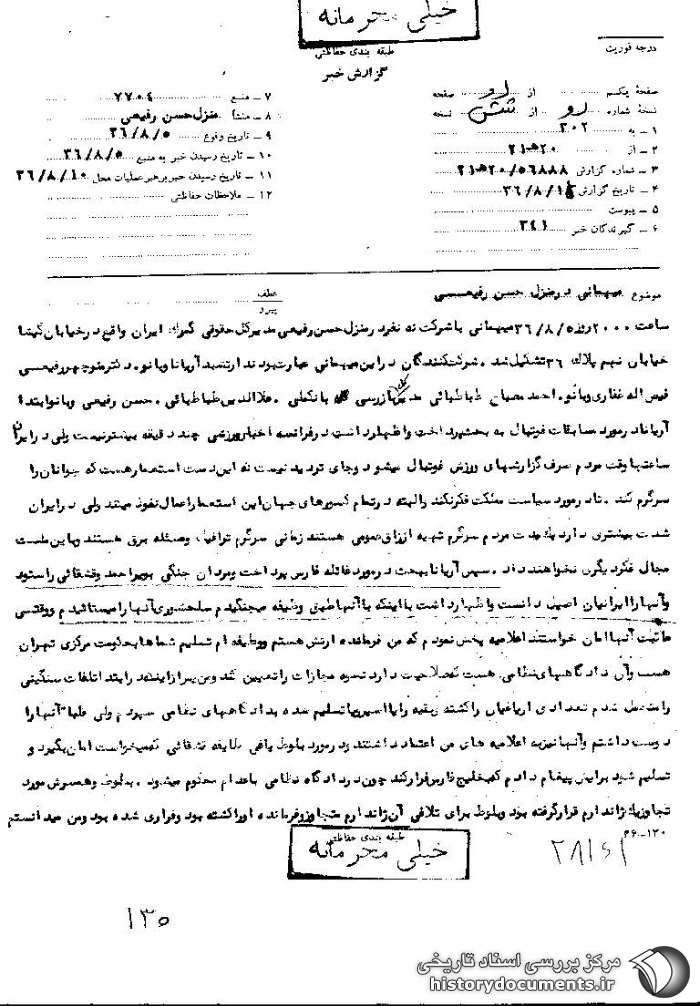 خیلی محرمانه
طبقه بندی حفاظتی
گزارش خبر
درجه فوریت
صفحهٔ یکم از دو صفحه
نسخهٔ شماره دو از شش نسخه
۱ – به ۳۰۲
۲ – از ۲۰ه۲۱
۳ – شماره گزارش ۲۱ه۲۰/۵۶۸۸۸
۴ – تاریخ گزارش
۵ – پیوست
۶ – گیرندگان خبر ۳۴۱
۷ – منبع ۷۷۰۴
۸ – منشأ منزل حسن رفیعی
۹ – تاریخ وقوع ۳۶/۸/۵
۱۰ – تاریخ رسیدن خبر به منبع ۳۶/۸/۵
۱۱ – تاریخ رسیدن خبر به رهبر عملیات محل ۳۶/۸/۱۰
۱۲ – ملاحظات حفاظتی
موضوع میهمانی در منزل حسن رفیعی
عطف
پیرو
ساعت ۲۰۰۰ روز ۳۶/۸/۵ میهمانی با شرکت نه نفر در منزل حسن رفیعی مدیر کل حقوقی گمرک ایران واقع در خیابان گیشا
خیابان نهم پلاک ۳۶ تشکیل شد. شرکت کنندگان در این میهمانی عبارت بودند ارتشبد آریانا و بانو. دکتر منوچهر رفیعی
فیض اله غفاری و بانو. احمد مصباح طباطبائی بازرسی بانکملی. علاالدین طباطبائی. حسن رفیعی و بانو ابتدا
آریانا در مورد مسابقات فوتبال به بحث پرداخت و اظهار داشت در فرانسه اخبار ورزشی چند دقیقه بیشتر نیست ولی در ایران
ساعتها وقت مردم صرف گزارشهای ورزش فوتبال میشود و جای تردید نیست که این دست استعمار هست که جوانان را
سرگرم کند. تا در مورد سیاست مملکت فکر نکنند والبته در تمام کشورهای جهان این استعمار اعمال نفوذ میکند ولی در ایران
شدت بیشتری دارد یک مدت مردم سرگرم تهیه ارزاق عمومی هستند زمانی سرگرم ترافیک و مسئله برق هستند و باین ملت
مجال فکر دیگری نخواهند داد. سپس آریانا به بحث در مورد غائله فارس پرداخت و مردان جنگی بویراحمد و قشقائی را ستود
و آنها را ایرانیان اصیل دانست و اظهار داشت با اینکه با آنها طبق وظیفه میجنگیدم سلحشوری آنها را میستائیدم و وقتی
آنها امان خواستند اعلامیه پخش نمودم که من فرمانده ارتش هستم و وظیفه ام تسلیم شما ها به حکومت مرکزی تهران
هست و آن دادگاههای نظامی هست که صلاحیت دارد نحوه مجازات را تعیین کند و من پس از اینکه در ابتدا تلفات سنگینی
را متحمل شدم تعدادی از یاغیان را کشته و بقیه را یا اسیر یا تسلیم شده به دادگاههای نظامی سپردم ولی آنها را
دوست داشتم و آنها نیز به اعلامیه های من اعتماد داشتند و در مورد بلوط یاغی طایفه قشقائی که میخواست امان بگیرد و
تسلیم شود برایش پیغام دادم که به خلیج فارس فرار کند چون در دادگاه نظامی باعدام محکوم میشود. بلوط و همسرش مورد
تجاوز یک ژاندارم قرار گرفته بود و بلوط برای تلافی آن ژاندارم متجاوز و فرمانده او را کشته بود و فراری شده بود و من میدانستم
۳۶–۱۳۰
طبقه بندی حفاظتی
خیلی محرمانه
۱۳۵
مرکز بررسی اسناد تاریخی
historydocuments.ir